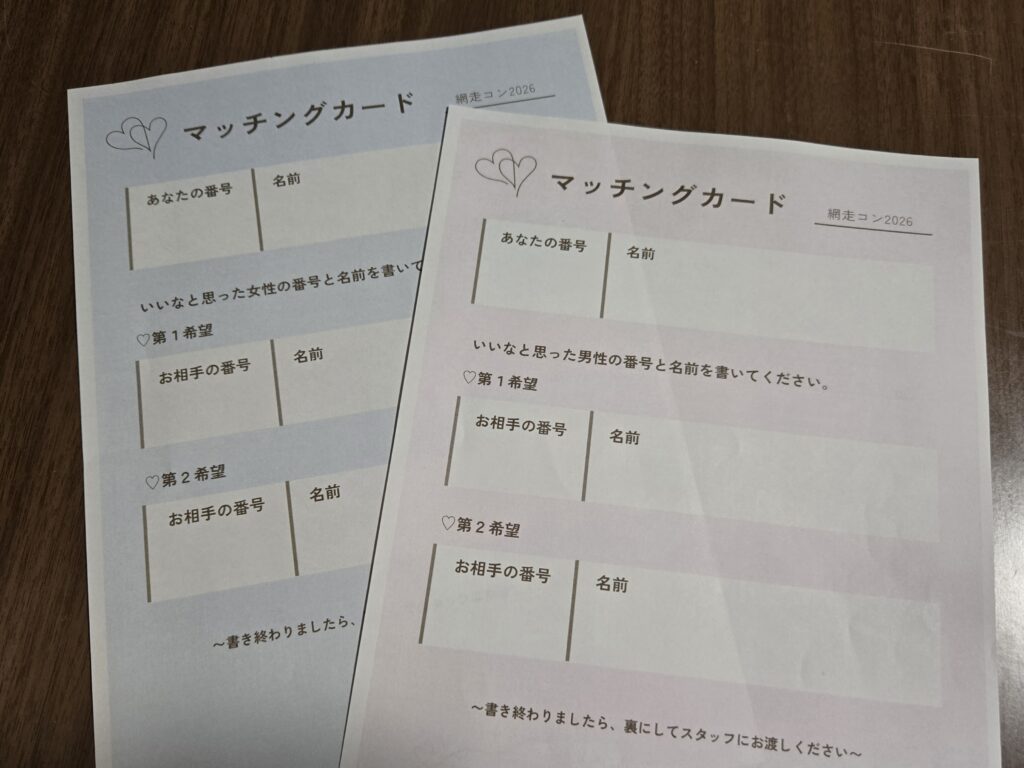 マッチングカード
網走コン2026
あなたの番号
名前
いいなと思った女性の番号と名前を書いて
♡第1希望
お相手の番号
名前
♡第2希望
お相手の番号
名前
～書き終わりましたら、
マッチングカード
網走コン2026
あなたの番号
名前
いいなと思った男性の番号と名前を書いてください。
♡第1希望
お相手の番号
名前
♡第2希望
お相手の番号
名前
～書き終わりましたら、裏にしてスタッフにお渡しください～